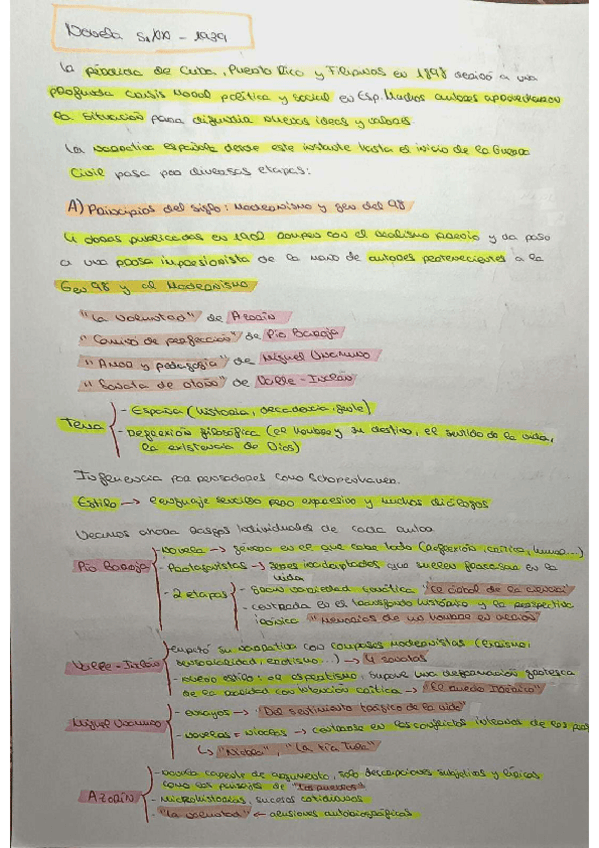 Novela S.XX - 1939
La pérdida de Cuba, Puerto Rico y Filipinas en 1898 derivó a una
profunda crisis moral política y social en Esp. Muchos autores aprovecharon
la situación para difundir nuevas ideas y valores.
La narrativa española desde este instante hasta el inicio de la Guerra
Civil pasa por diversas etapas:
A) Principios del siglo: Modernismo y gen del 98
4 obras publicadas en 1902 rompen con el realismo previo y da paso
a una prosa impresionista de la mano de autores pertenecientes a la
Gen 98 y al Modernismo
"La voluntad" de Azorín
"Camino de perfección" de Pío Baroja
"Amor y pedagogía" de Miguel Unamuno
"Sonata de otoño" de Valle-Inclán
Tema
- España (historia, decadencia, gente)
- Reflexión filosófica (el hombre y su destino, el sentido de la vida,
la existencia de Dios)
Influencia por pensadores como Schopenhauer.
Estilo → lenguaje sencillo pero expresivo y muchos diálogos
Veamos ahora rasgos individuales de cada autor
Pío Baroja
- novela → género en el que cabe todo (reflexión, crítica, humor...)
- Protagonistas → seres inadaptados que suelen fracasar en la
vida
- 2 etapas
- gran variedad temática "El árbol de la ciencia"
- centrada en el trasfondo histórico y la perspectiva
irónica "Memorias de un hombre en acción"
Valle-Inclán
- empezó su narrativa con compases modernistas (lirismo,
sensorialidad, erotismo...) → 4 sonatas
- nuevo estilo: el esperpentismo, supone una deformación grotesca
de la realidad con intención crítica → "El ruedo Ibérico"
Miguel Unamuno
- ensayos → "Del sentimiento trágico de la vida"
- novelas = nivolas → centrarse en los conflictos internos de los
↳ "Niebla", "La tía Tula"
Azorín
- novela carente de argumento, solo descripciones subjetivas y líricas
como los paisajes de "Los pueblos"
- microhistorias, sucesos cotidianos
- "La voluntad" ← alusiones autobiográficas